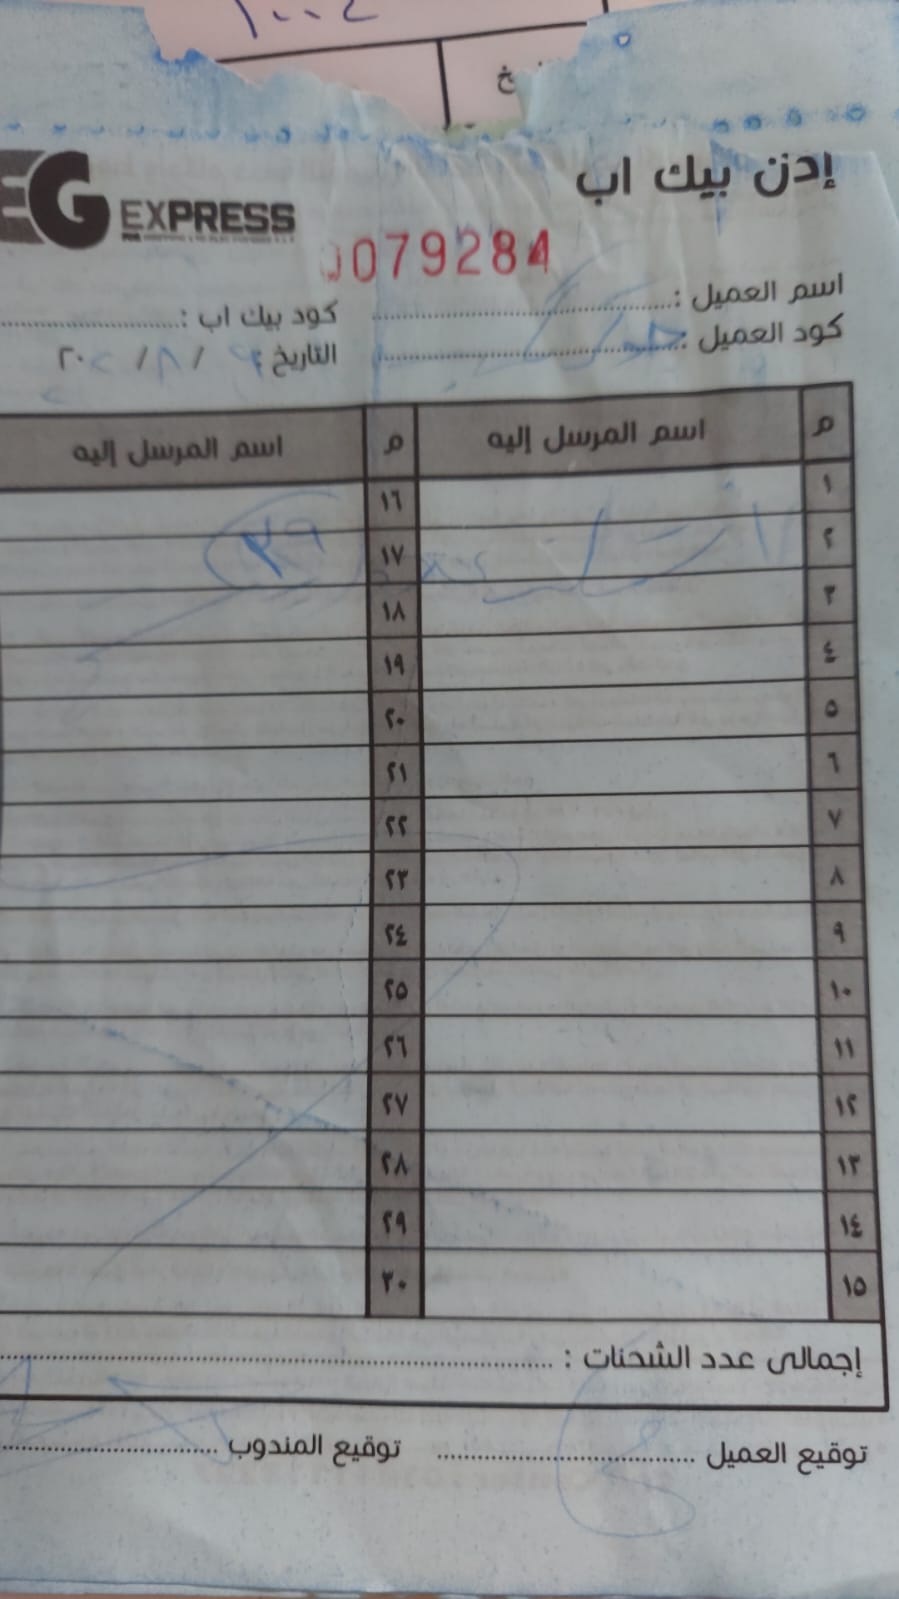 ١٠٠٤
إذن بيك اب
EG EXPRESS
0079284
اسم العميل :
كود بيك اب :
كود العميل :
التاريخ : ٩ / ٨ / ٢٠٢
م اسم المرسل إليه م اسم المرسل إليه
١ ١٦
٢ ١٧
٣ ١٨
٤ ١٩
٥ ٢٠
٦ ٢١
٧ ٢٢
٨ ٢٣
٩ ٢٤
١٠ ٢٥
١١ ٢٦
١٢ ٢٧
١٣ ٢٨
١٤ ٢٩
١٥ ٣٠
إجمالى عدد الشحنات :
توقيع العميل توقيع المندوب